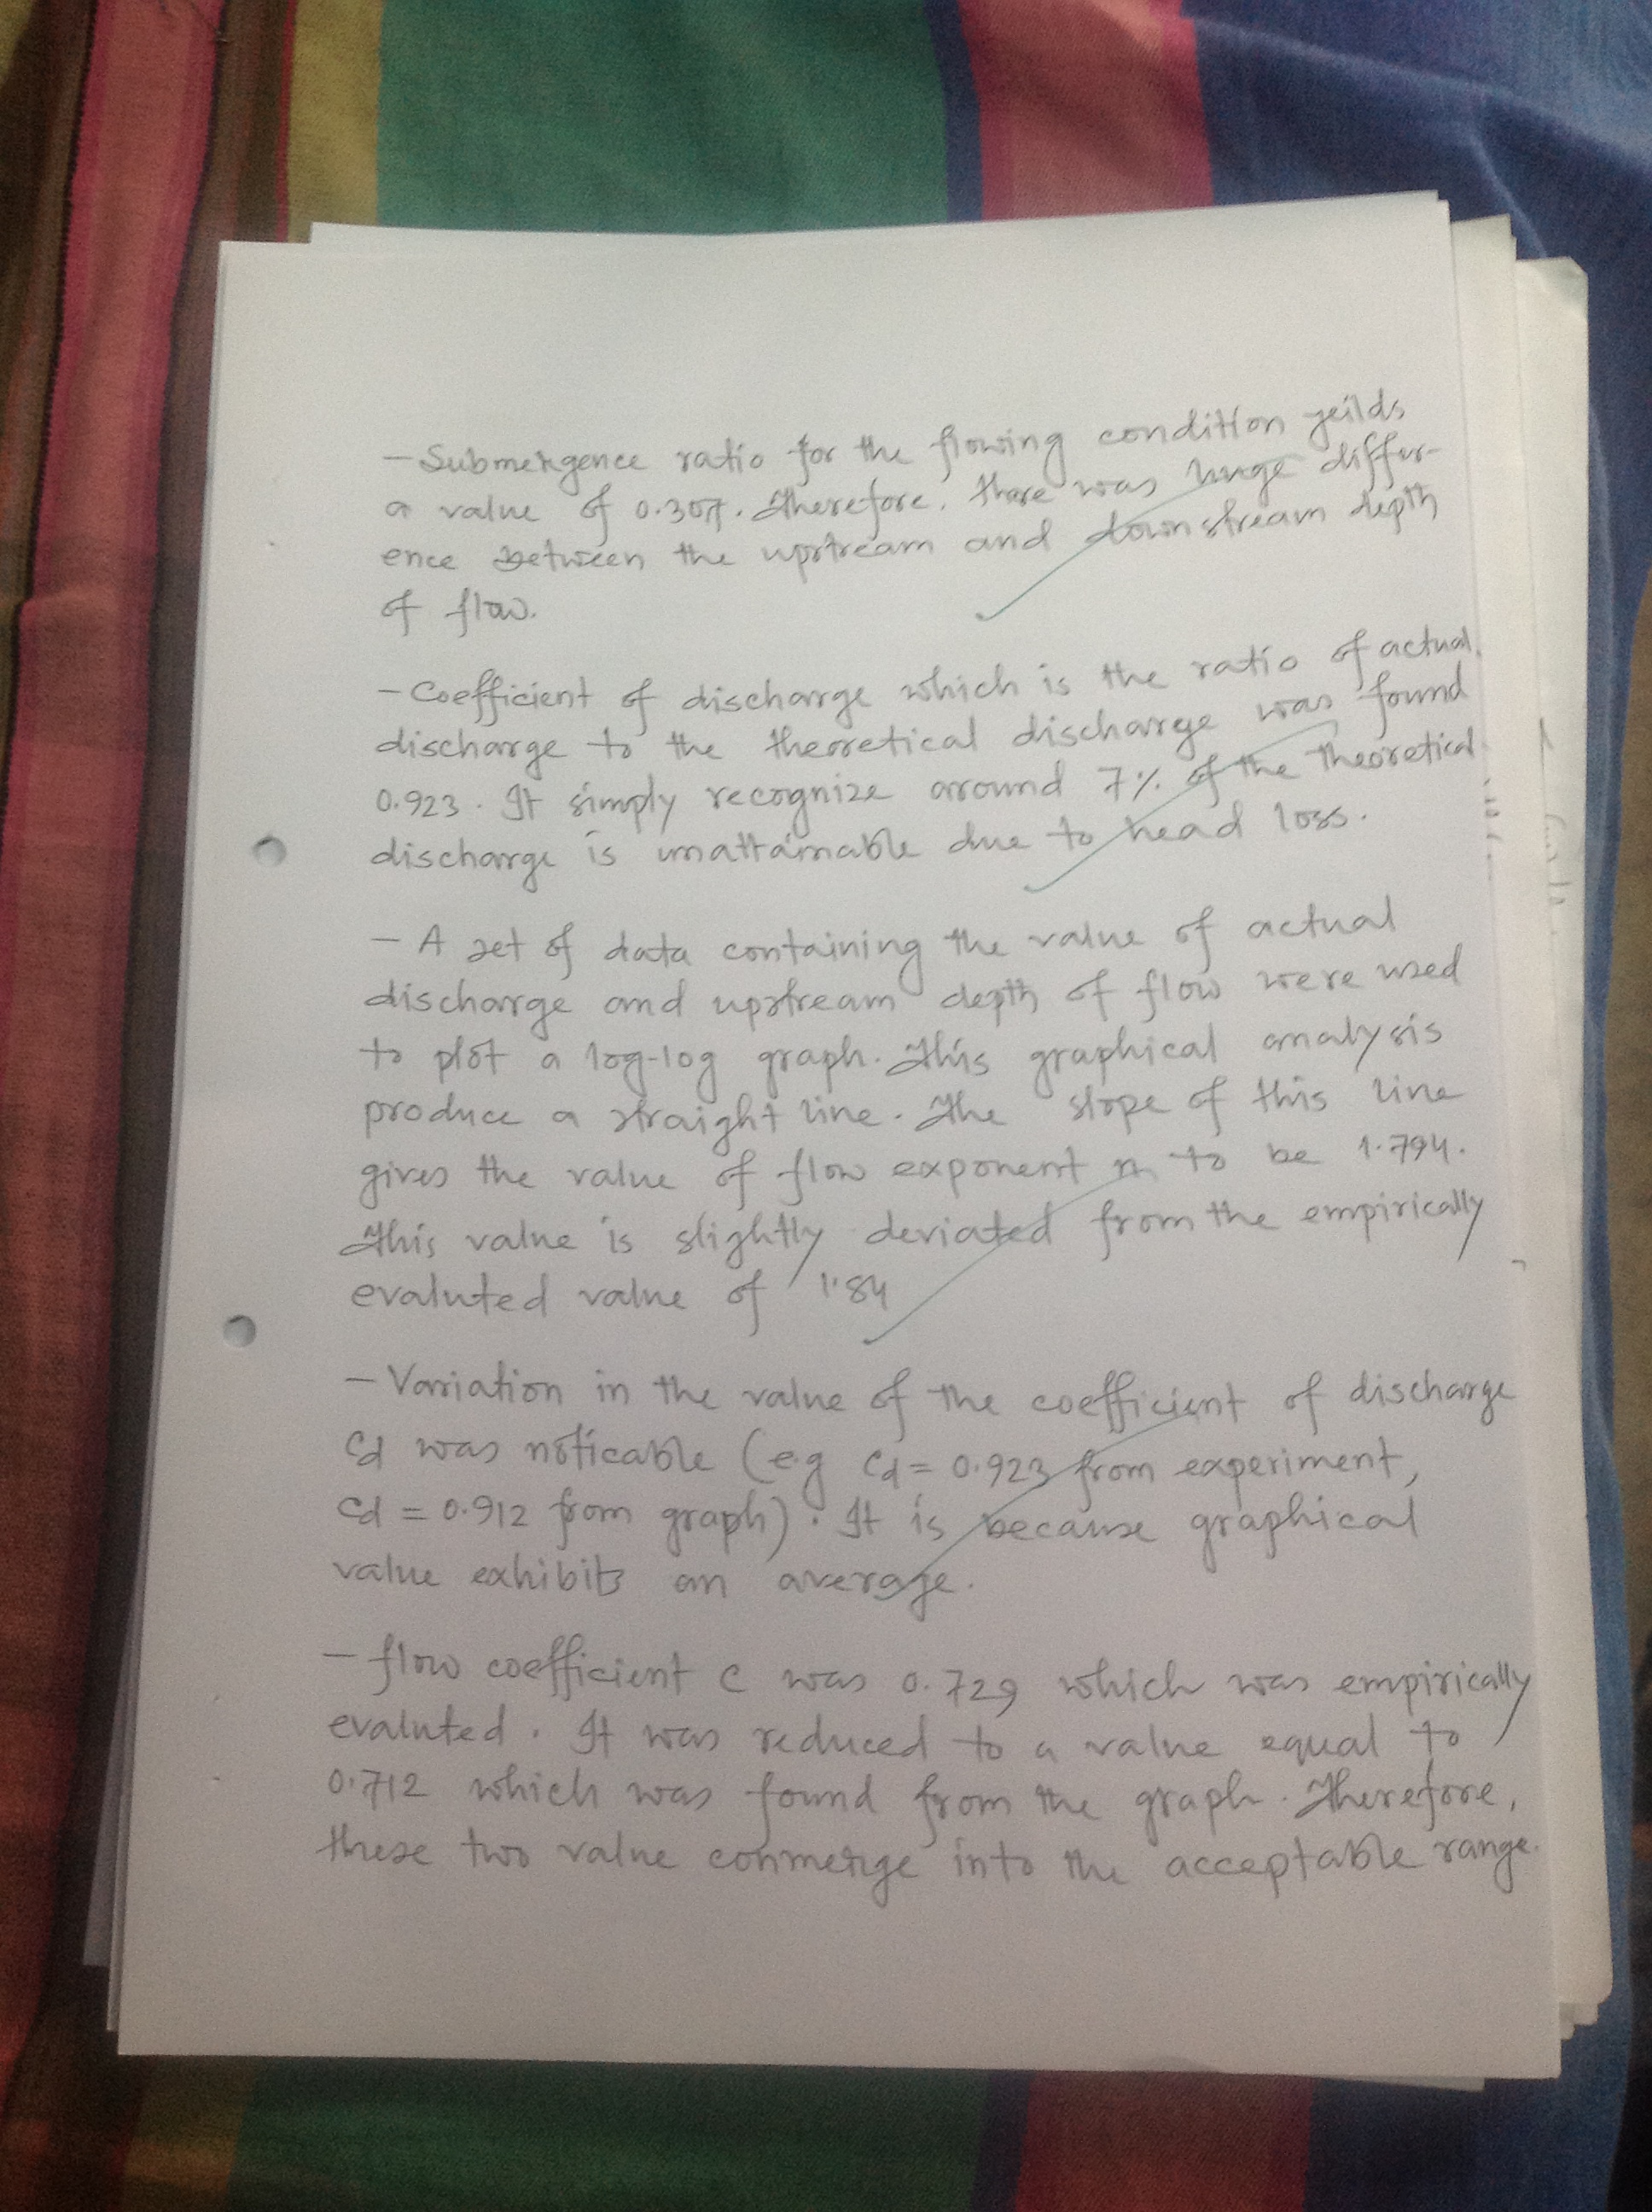 - Submergence ratio for the flowing condition yeilds
a value of 0.307. Therefore, there was huge differ-
ence between the upstream and downstream depth
of flow.
- Coefficient of discharge which is the ratio of actual
discharge to the theoretical discharge was found
0.923. It simply recognize around 7% of the theoretical
discharge is unattainable due to head loss.
- A set of data containing the value of actual
discharge and upstream depth of flow were used
to plot a log-log graph. This graphical analysis
produce a straight line. The slope of this line
gives the value of flow exponent n to be 1.794.
This value is slightly deviated from the empirically
evaluted value of 1.84
- Variation in the value of the coefficient of discharge
Cd was noticable (e.g Cd = 0.923 from experiment,
Cd = 0.912 from graph). It is because graphical
value exhibits an average.
- flow coefficient C was 0.729 which was empirically
evaluted. It was reduced to a value equal to
0.712 which was found from the graph. Therefore,
these two value conmerge into the acceptable range.